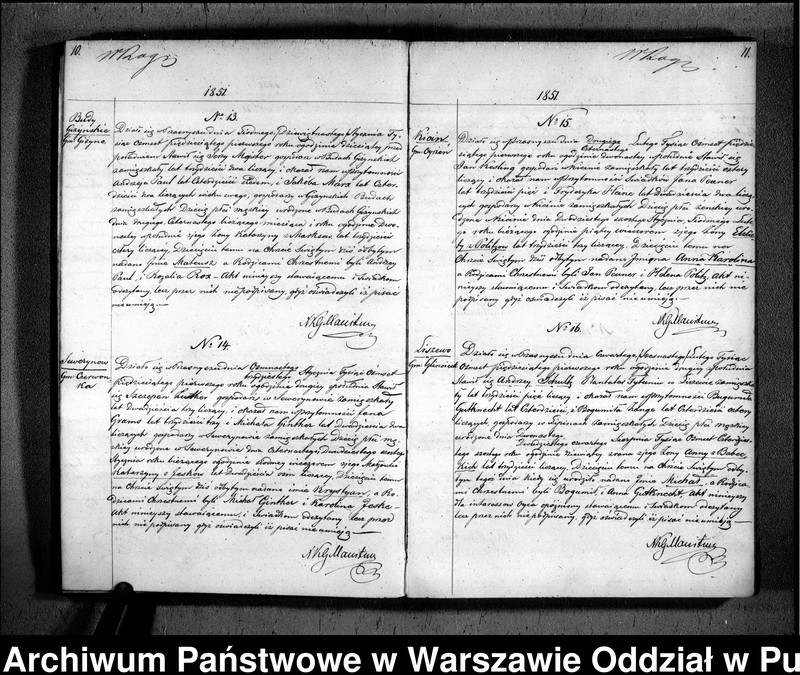 10.
1851
Budy
Giżyńskie
Gm: Giżyne
No 13.
Działo się w Przasnyszu dnia Siódmego/Dziewiętnastego/Stycznia Ty-
siąc Osmset pięćdziesiątego pierwszego roku o godzinie dziesiątej przed
południem Stawił się Jerzy Majster gospodarz w Budach Giżyńskich
zamieszkały lat trzydzieści dwa liczący, i okazał nam w przytomności
Andrzeja Paul lat Czterdzieści siedem, i Jakóba Marx lat Czter-
dzieści dwa liczących wieku swego, gospodarzy w Giżyńskich Budach
zamieszkałych Dziecię płci męzkiej urodzone w Budach Giżyńskich
dnia drugiego/Czternastego bieżącego miesiąca i roku o godzinie dwu-
nastej w południe z jego żony Katarzyny z lat trzydzieści
cztery liczącej, Dziecięciu temu na Chrzcie Świętym dziś odbytym
nadane Imie Mateusz a Rodzicami Chrzestnemi byli Andrzej
Paul, i Rozalia Rox - Akt niniejszy stawaiącemu i Świadkom
odczytany, lecz przez nich niepodpisany gdyż oświadczyli iż pisać
nieumieją.
Sewerynow
Gm: Czerwon
ka
No 14.
Działo się w Przasnyszu dnia Osmnastego/trzydziestego Stycznia Tysiąc Osmset
pięćdziesiątego pierwszego roku o godzinie drugiej z południa Stawił
się Szczepan gospodarz w Sewerynowie zamieszkały
lat dwadzieścia trzy liczący, i okazał nam w przytomności Jana
lat trzydzieści trzy i Michała Ginther lat dwadzieścia dwa
liczących gospodarzy w Sewerynowie zamieszkałych Dziecię płci mę-
zkiej urodzone w Sewerynowie dnia Czternastego/Dwudziestego szóstego
Stycznia roku bieżącego o godzinie siódmej wieczorem z jego Małżonki
Katarzyny z Jesków lat dwadzieścia osm liczącej, Dziecięciu temu
na Chrzcie Świętym dziś odbytym nadane imie Krystyan, a Ro-
dzicami Chrzestnemi byli Michał Ginther i Karolina Jeske -
Akt niniejszy stawaiącemu, i Świadkom odczytany lecz przez
nich niepodpisany gdyż oświadczyli iż pisać nieumieją -
11.
1851.
Kicin
No 15.
Działo się w Przasnyszu dnia drugiego/Czternastego Lutego Tysiąc Osmset pięćdzie-
siątego pierwszego roku o godzinie dwunastej w południe Stawił się
Jan gospodarz w Kicinie zamieszkały lat trzydzieści cztery
liczący i okazał nam w przytomności świadków Jana
lat trzydzieści pięć i Fryderyka Heine lat dwadzieścia dwa licz-
cych gospodarzy w Kicinie zamieszkałych Dziecię płci żeńskiej uro-
dzone w Kicinie dnia Dwudziestego szóstego Stycznia/Siódmego Lute-
go roku bieżącego o godzinie piątej wieczorem z jego żony Elżbie-
ty z lat trzydzieści trzy liczącej, Dziecięciu temu na
Chrzcie Świętym dziś odbytym nadano Imiona Anna Karolina
a Rodzicami Chrzestnemi byli Jan i Helena Akt ni-
niejszy stawaiącemu i Świadkom odczytany, lecz przez nich nie
podpisany gdyż oświadczyli iż pisać nieumieją -
Liszewo
No 16.
Działo się w Przasnyszu dnia Czwartego/Szesnastego/Lutego Tysiąc
Osmset pięćdziesiątego pierwszego roku o godzinie drugiej z południa
Stawił się Andrzej Schultz Plantator Tytuniu w Liszewie zamieszka-
ły lat trzydzieści pięć liczący, i okazał nam w przytomności Bogumiła
Gutknecht lat Czterdzieści, i Bogumiła Range lat Czterdzieści cztery
liczących, gospodarzy w zamieszkałych Dziecię płci męzkiej
urodzone dnia Dwunastego/Dwudziestego czwartego Sierpnia Tysiąc Osmset Czterdzie-
stego roku o godzinie dziewiątej zrana z jego żony Anny z
lat trzydzieści liczącej, Dziecięciu temu na Chrzcie Świętym odby-
tym tego dnia kiedy się urodziło nadano Imie Michał, a Rodzica-
mi Chrzestnemi byli Bogumił i Anna Gutknecht. Akt niniejszy
stawaiącemu i Świadkom odczytany
lecz przez nich niepodpisany, gdyż oświadczyli iż pisać nieumieją -
Archiwum Państwowe w Warszawie Oddział w Pu